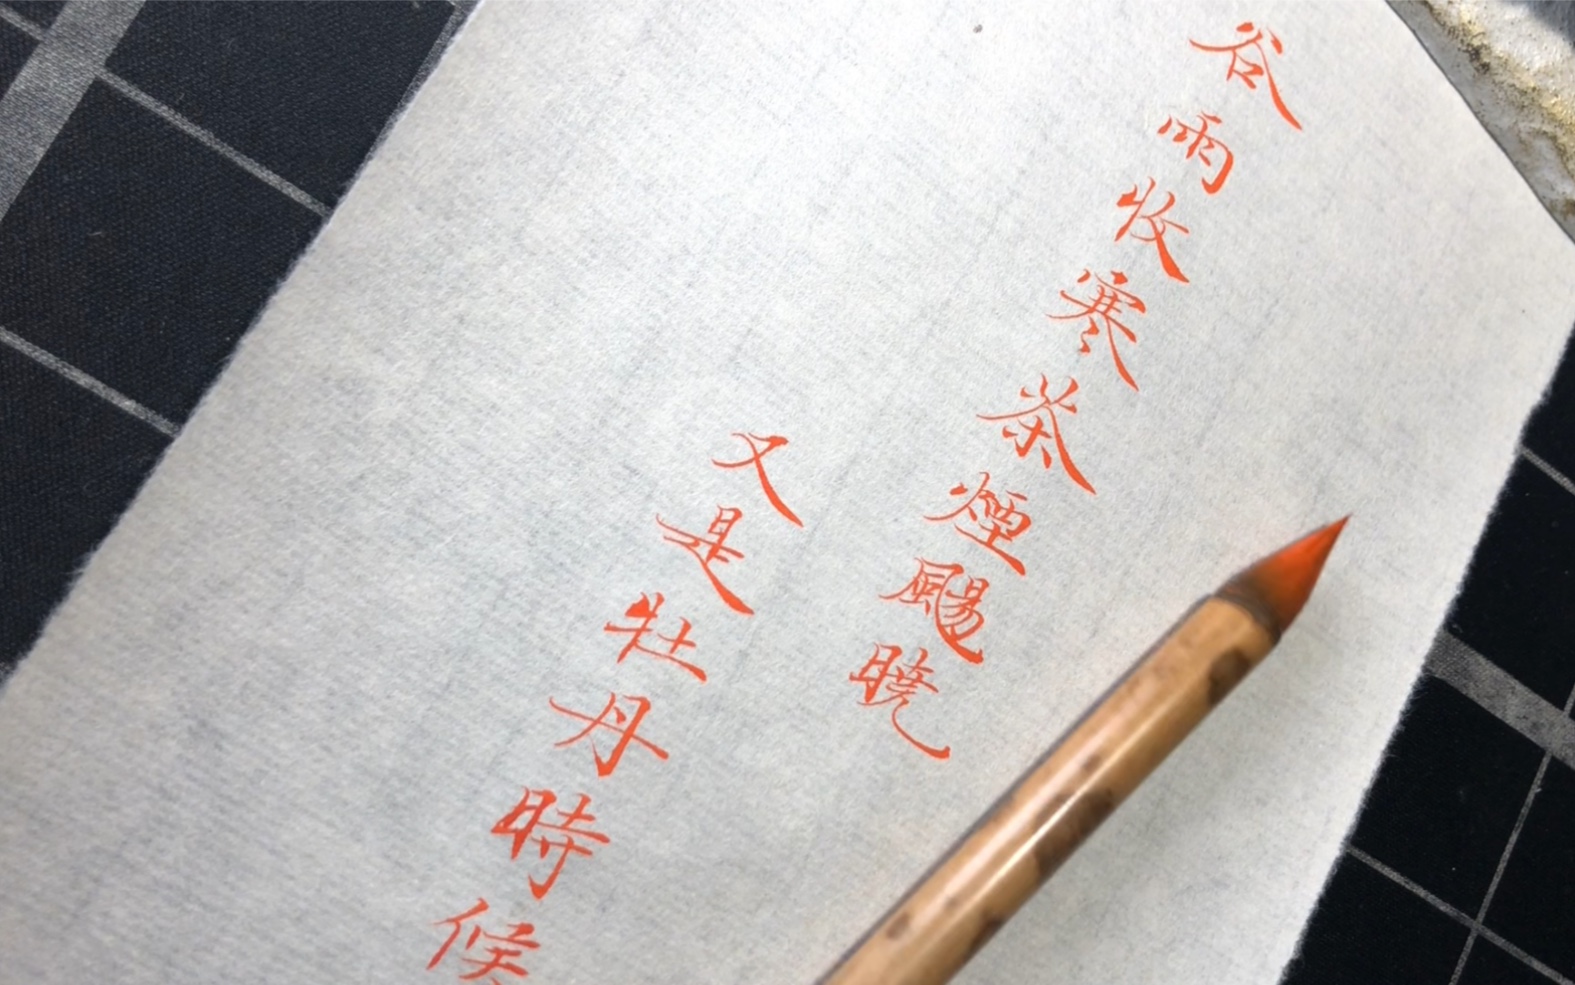 谷雨收寒茶煙颺曉
又是牡丹時候